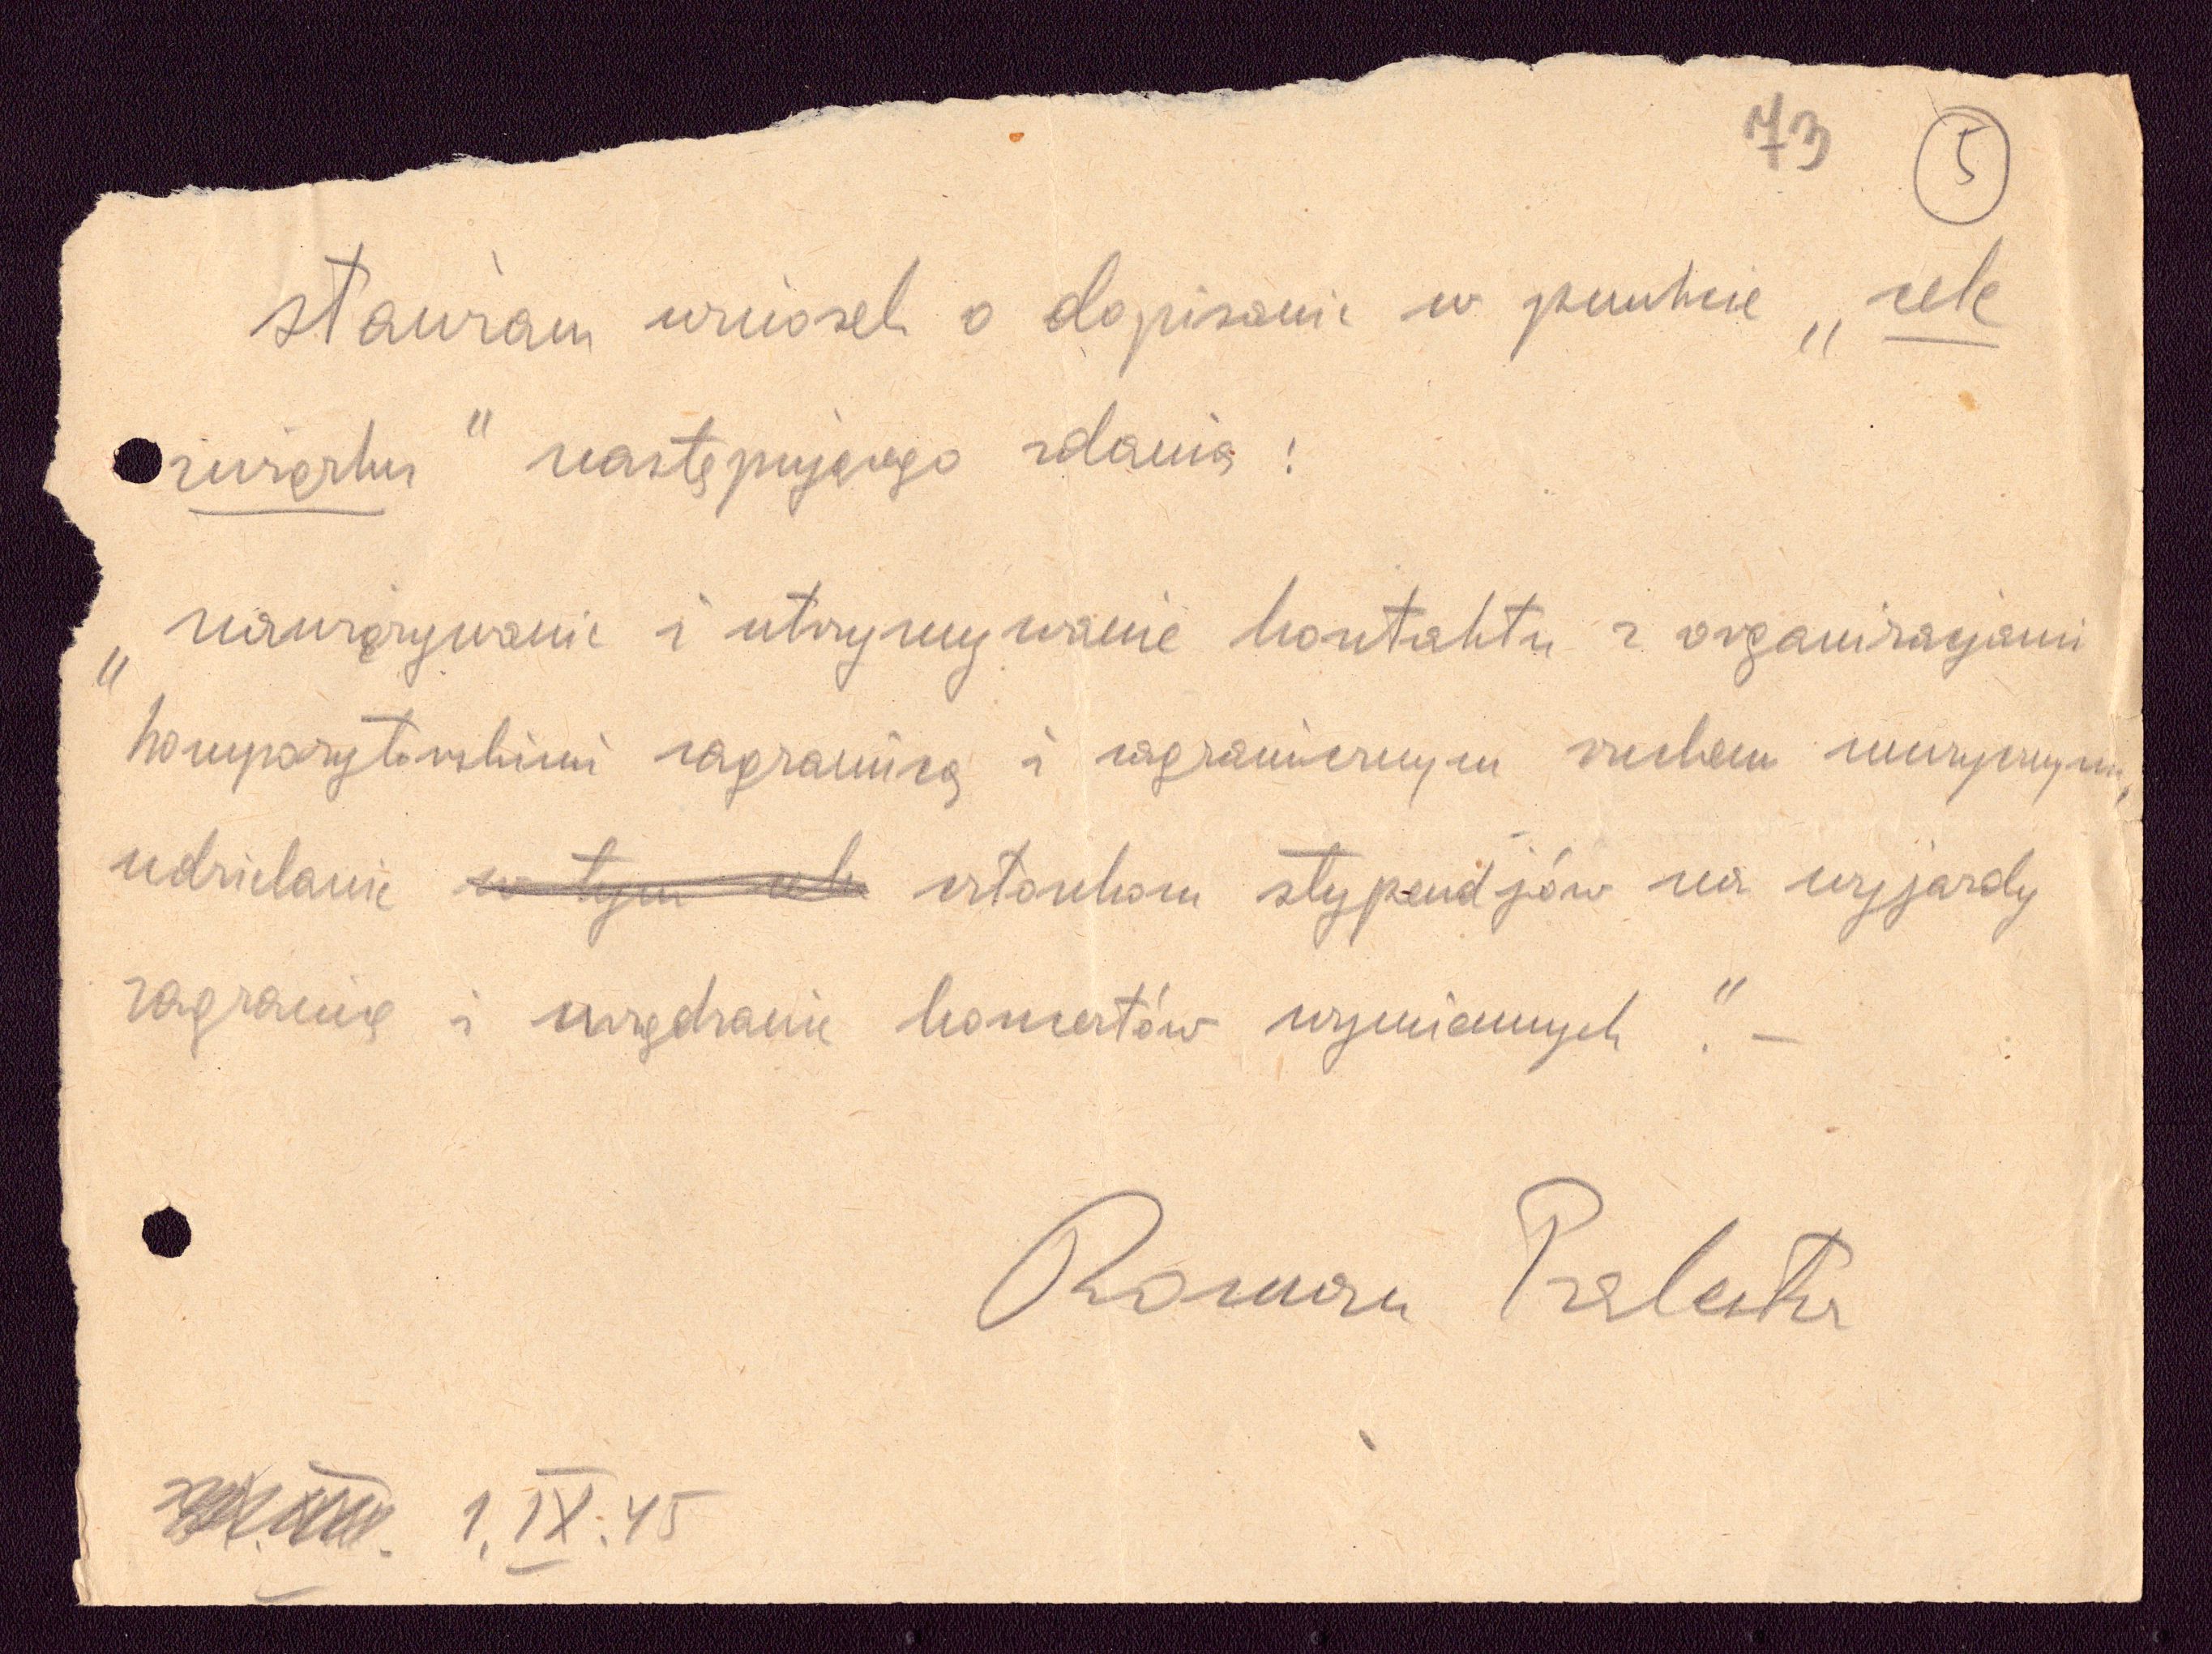 73 5
stawiam wniosek o dopisanie w punkcie „cele
związku" następującego zdania:
„nawiązywanie i utrzymywanie kontaktu z organizacjami
kompozytorskimi zagranicą i zagranicznym ruchem muzycznym,
udzielanie w tym celu członkom stypendjów na wyjazdy
zagranicę i urządzanie koncertów wymiennych". –
Roman Palester
1. IX. 45